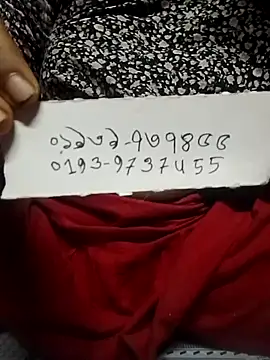 ০১৯৩৯-৭৩৭৪৫৫
0193-9737455